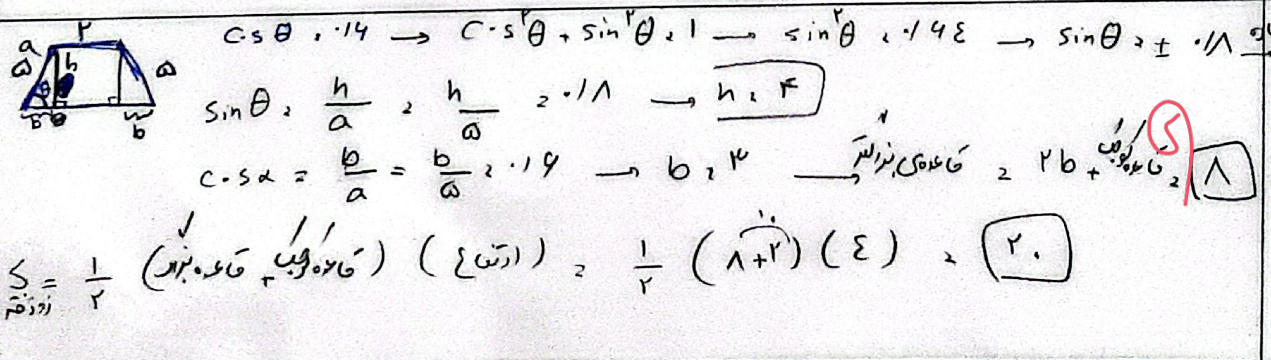 cosθ = ۰/۶ → cos²θ + sin²θ = ۱ → sin²θ = ۰/۶۴ → sinθ = ± ۰/۸
۲
a h ۵
۵ θ
b b
sinθ = h/a = h/۵ = ۰/۸ → h = ۴
cosα = b/a = b/۵ = ۰/۶ → b = ۳ → قاعده‌ی بزرگتر = ۲b + قاعده کوچک = ۸
۵
S ذوزنقه = ۱/۲ (قاعده کوچک + قاعده بزرگ) (ارتفاع) = ۱/۲ (۸+۲) (۴) = ۲۰
۱۰